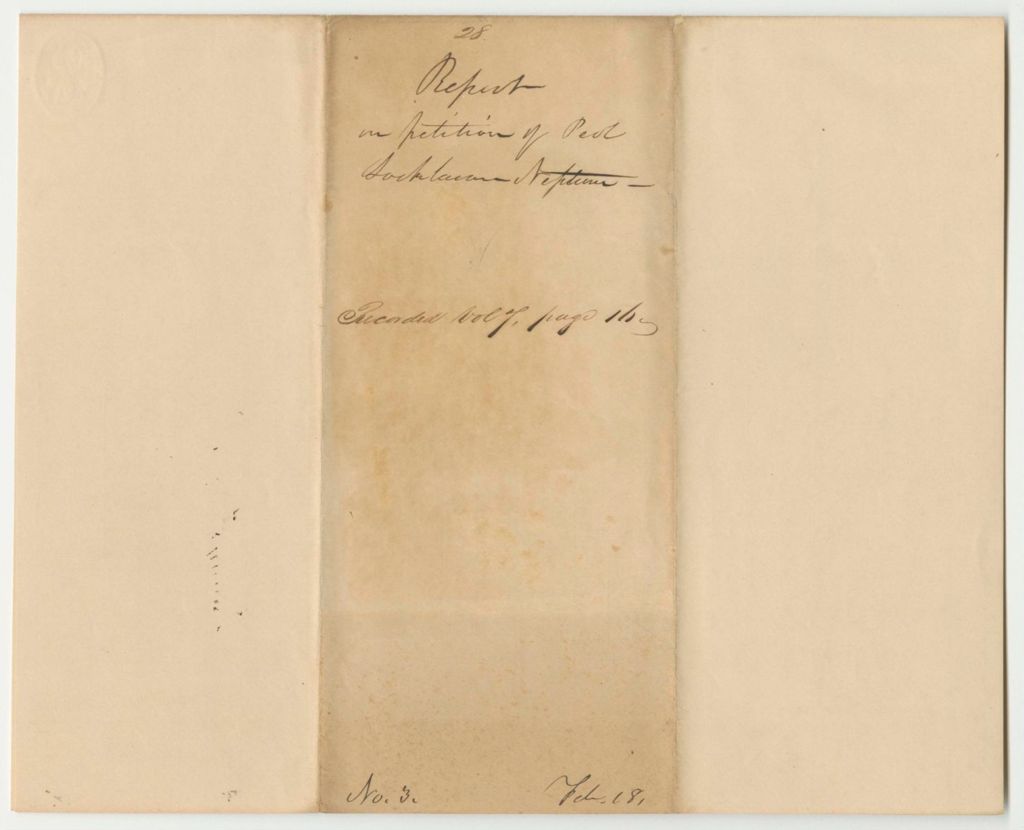 28
Report
on petition of Peol
Sockbason Neptune —
Recorded Vol 7, page 16
No. 3.
Feb. 18,